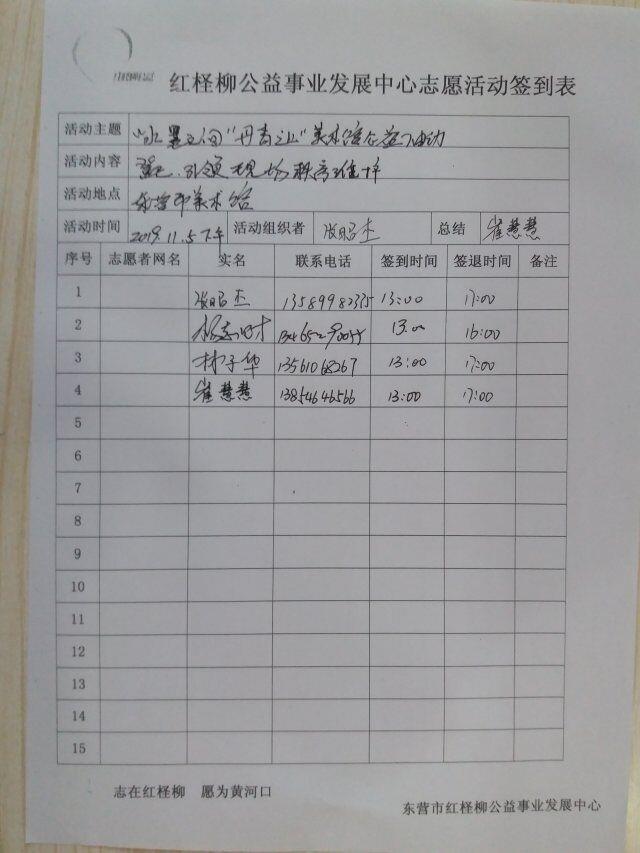 红柽柳公益事业发展中心志愿活动签到表
活动主题 "水墨之间""丹青之上"美术馆公益活动
活动内容 引领 现场秩序维护
活动地点 东营市美术馆
活动时间 2019.11.5下午 活动组织者 张昭杰 总结 崔慧慧
序号 志愿者网名 实名 联系电话 签到时间 签退时间 备注
1 张昭杰 13589982335 13:00 17:00
2 13:00 16:00
3 林子华 13561068267 13:00 17:00
4 崔慧慧 13854646566 13:00 17:00
5
6
7
8
9
10
11
12
13
14
15
志在红柽柳 愿为黄河口
东营市红柽柳公益事业发展中心